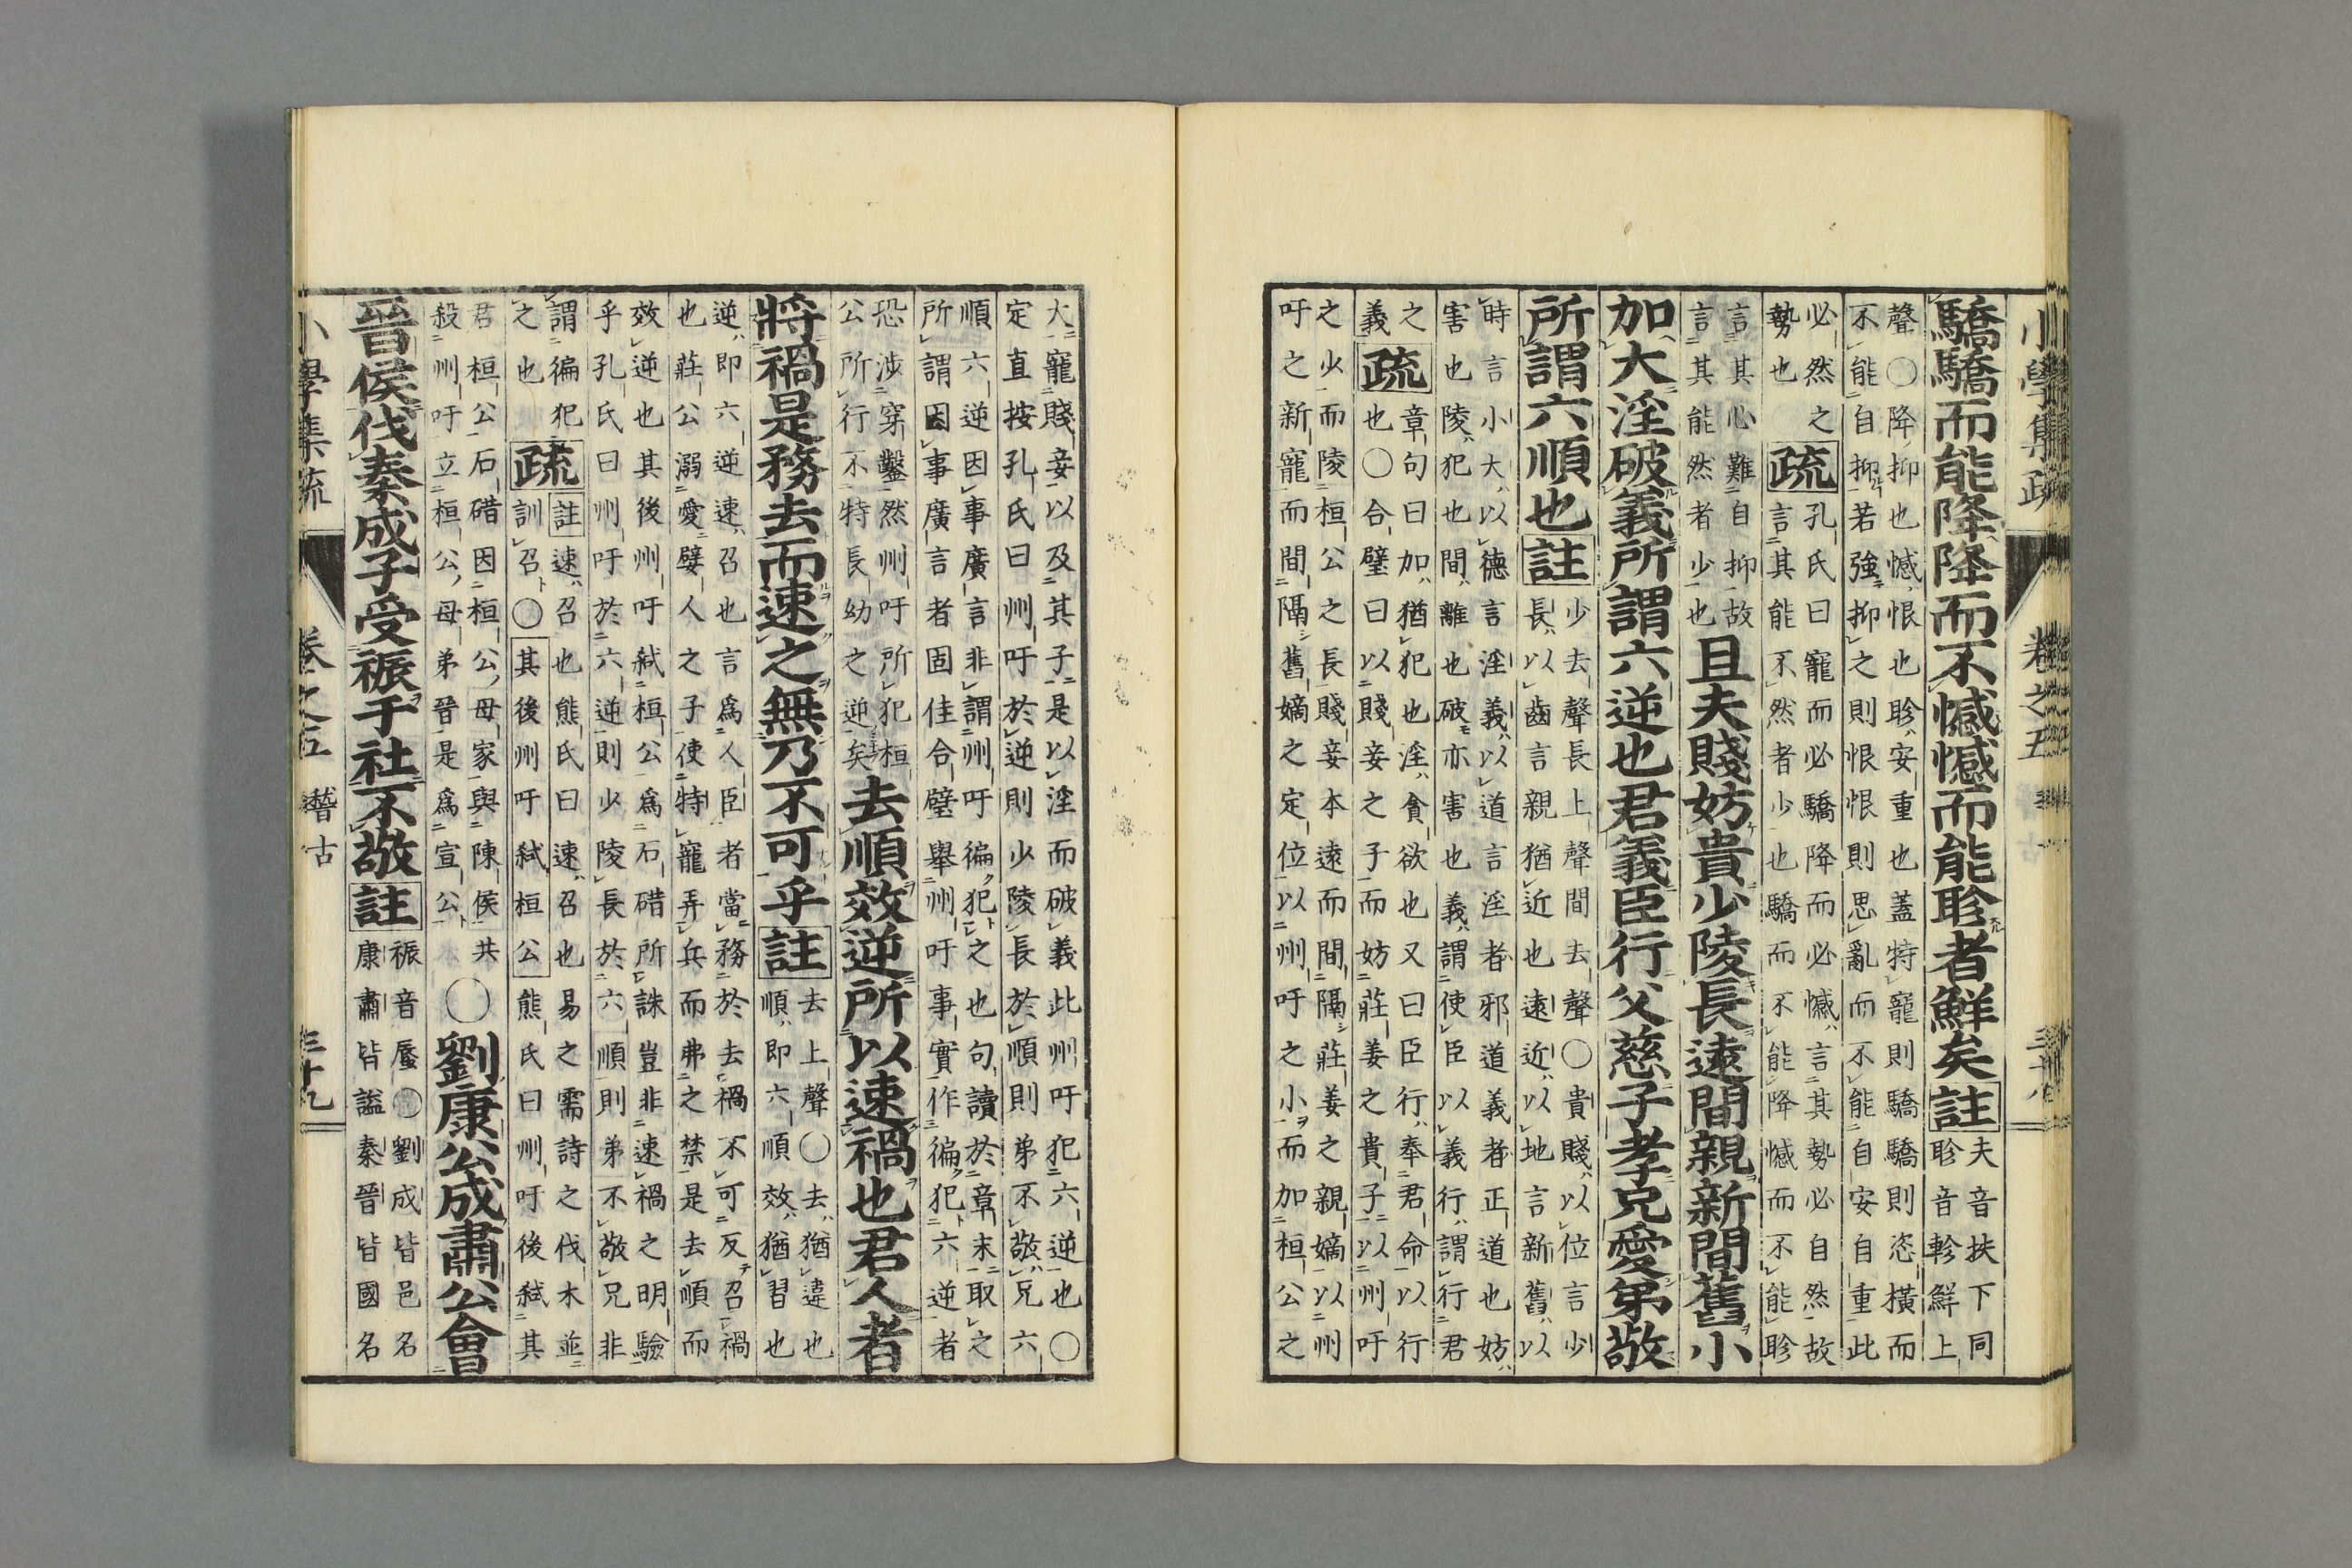 小學集疏 卷之五
驕驕而能降降而不憾憾而能眕者鮮矣註
夫音扶下同
眕音軫鮮上
聲○降抑也憾恨也眕安重也蓋特寵則驕驕則恣橫而
不能自抑若強抑之則恨恨則思亂而不能自安自重此
必然之
勢也
疏
孔氏曰寵而必驕降而必憾言其勢必自然故
言其能不然者少也驕而不能降憾而不能眕
言其心難自抑故
言其能然者少也
且夫賤妨貴少陵長遠間親新間舊小
加大淫破義所謂六逆也君義臣行父慈子孝兄愛弟敬
所謂六順也註
少去聲長上聲間去聲○貴賤以位言少
長以齒言親猶近也遠近以地言新舊以
時言小大以德言淫義以道言淫者邪道義者正道也妨
害也陵犯也間離也破亦害也義謂使臣以義行謂行君
之
義
疏
章句曰加猶犯也淫貪欲也又曰臣行奉君命以行
也○合璧曰以賤妾之子而妨莊姜之貴子以州吁
之少而陵桓公之長賤妾本遠而間隔莊姜之親嫡以州
吁之新寵而間隔舊嫡之定位以州吁之小而加桓公之
大寵賤妾以及其子是以淫而破義此州吁犯六逆也○
定直按孔氏曰州吁於逆則少陵長於順則弟不敬兄六
順六逆因事廣言非謂州吁徧犯之也句讀於章末取之
所謂因事廣言者固佳合璧舉州吁事實作徧犯六逆者
恐涉穿鑿然州吁所犯桓
公所行不特長幼之逆矣
去順效逆所以速禍也君人者
將禍是務去而速之無乃不可乎註
去上聲○去猶違也
順即六順效猶習也
逆即六逆速召也言爲人臣者當務於去禍不可反召禍
也莊公溺愛嬖人之子使特寵弄兵而弗之禁是去順而
效逆也其後州吁弑桓公爲石碏所誅豈非速禍之明驗
乎孔氏曰州吁於六逆則少陵長於六順則弟不敬兄非
謂徧犯
之也
疏
註速召也熊氏曰速召也易之需詩之伐木並
訓召○其後州吁弑桓公熊氏曰州吁後弑其
君桓公石碏因桓公母家與陳侯共
殺州吁立桓公母弟晉是爲宣公
○劉康公成肅公會
晉侯伐秦成子受脤于社不敬註
脤音蜃○劉成皆邑名
康肅皆謚秦晉皆國名
小學集疏 卷之五 稽古 三十九